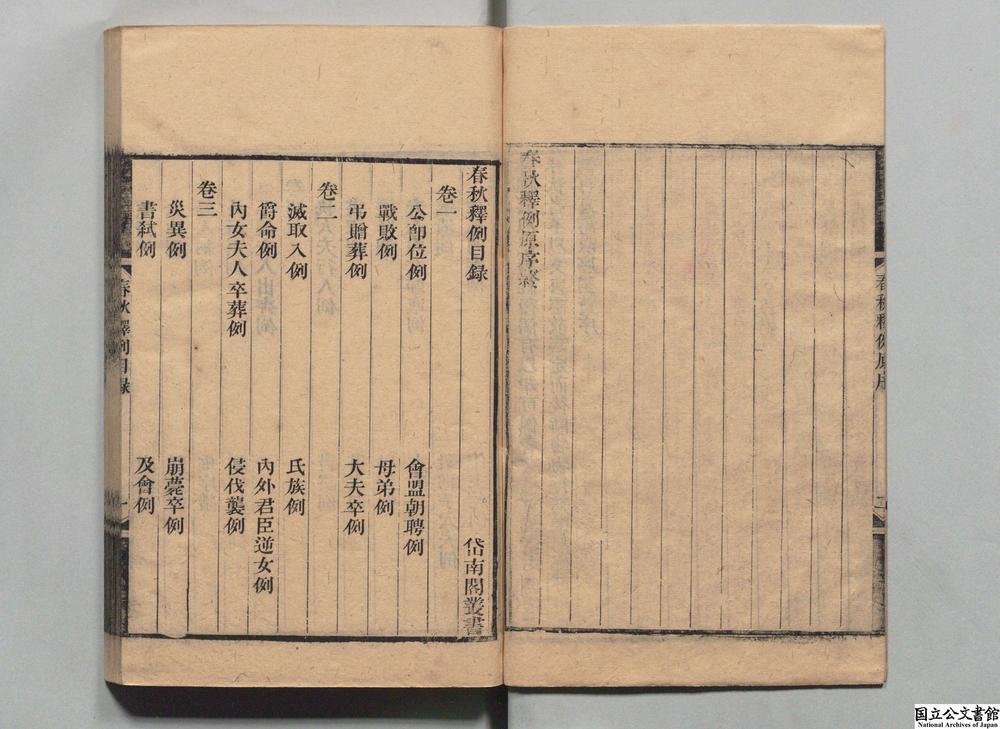 春秋釋例原序
二
春秋釋例原序終
春秋釋例目錄 岱南閣叢書
卷一
公卽位例 會盟朝聘例
戰敗例 母弟例
弔贈葬例 大夫卒例
卷二
滅取入例 氏族例
爵命例 內外君臣逆女例
內女夫人卒葬例 侵伐襲例
卷三
災異例 崩薨卒例
書弑例 及會例
春秋釋例目錄
一
国立公文書館
National Archives of Japan